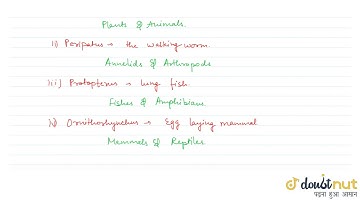 Plants & Animals.
ii) Peripatus → the walking worm.
Annelids & Arthropods
iii) Protopterus → lung fish
Fishes & Amphibians
iv) Ornithorhynchus → Egg laying mammal
Mammals & Reptiles
doubtnut
पढ़ना हुआ आसान